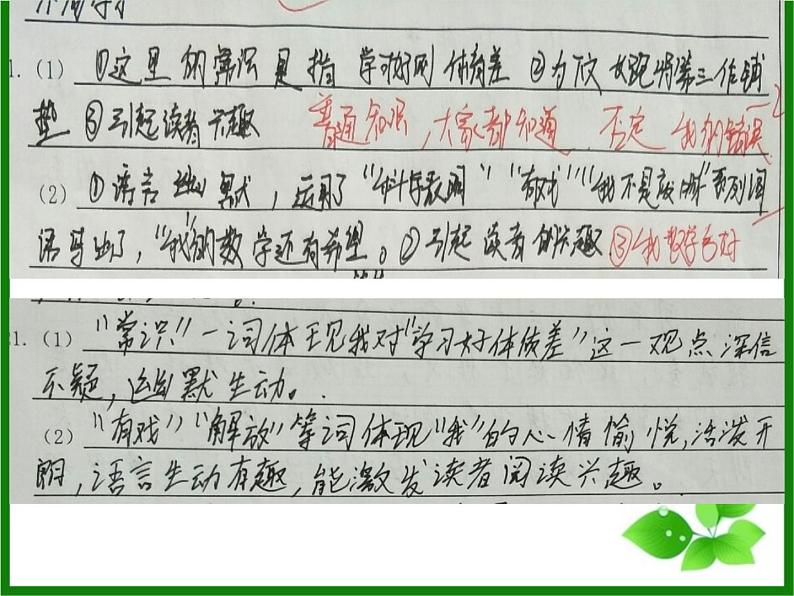 1.(1) ①这里的常识是指学习好则体育差②为下文跑将第三作铺
垫③引起读者兴趣 普通知识,大家都知道.否定我的错误 -2
(2)①语言幽默,运用了"科学表明""有戏""我不是应解"系列词
语写出了,"我"的数学还有希望。②引起读者的兴趣③我数学多好
21.(1)"常识"一词体现我对"学习好体质差"这一观点深信
不疑,幽默生动。
(2)"有戏""解放"等词体现"我"的心情愉悦,活泼开
朗,语言生动有趣,能激发读者阅读兴趣。